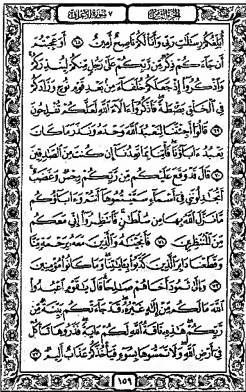 الجزء الثامن ٧ سورة الأعراف
أُبَلِّغُكُمْ رِسَالَاتِ رَبِّي وَأَنَا لَكُمْ نَاصِحٌ أَمِينٌ ٦٨ أَوَعَجِبْتُمْ
أَن جَاءَكُمْ ذِكْرٌ مِّن رَّبِّكُمْ عَلَىٰ رَجُلٍ مِّنكُمْ لِيُنذِرَكُمْ
وَاذْكُرُوا إِذْ جَعَلَكُمْ خُلَفَاءَ مِن بَعْدِ قَوْمِ نُوحٍ وَزَادَكُمْ
فِي الْخَلْقِ بَسْطَةً فَاذْكُرُوا آلَاءَ اللَّهِ لَعَلَّكُمْ تُفْلِحُونَ
٦٩ قَالُوا أَجِئْتَنَا لِنَعْبُدَ اللَّهَ وَحْدَهُ وَنَذَرَ مَا كَانَ
يَعْبُدُ آبَاؤُنَا فَأْتِنَا بِمَا تَعِدُنَا إِن كُنتَ مِنَ الصَّادِقِينَ
٧٠ قَالَ قَدْ وَقَعَ عَلَيْكُم مِّن رَّبِّكُمْ رِجْسٌ وَغَضَبٌ
أَتُجَادِلُونَنِي فِي أَسْمَاءٍ سَمَّيْتُمُوهَا أَنتُمْ وَآبَاؤُكُم
مَّا نَزَّلَ اللَّهُ بِهَا مِن سُلْطَانٍ فَانتَظِرُوا إِنِّي مَعَكُم
مِّنَ الْمُنتَظِرِينَ ٧١ فَأَنجَيْنَاهُ وَالَّذِينَ مَعَهُ بِرَحْمَةٍ مِّنَّا
وَقَطَعْنَا دَابِرَ الَّذِينَ كَذَّبُوا بِآيَاتِنَا وَمَا كَانُوا مُؤْمِنِينَ
٧٢ وَإِلَىٰ ثَمُودَ أَخَاهُمْ صَالِحًا قَالَ يَا قَوْمِ اعْبُدُوا
اللَّهَ مَا لَكُم مِّنْ إِلَٰهٍ غَيْرُهُ قَدْ جَاءَتْكُم بَيِّنَةٌ مِّن
رَّبِّكُمْ هَٰذِهِ نَاقَةُ اللَّهِ لَكُمْ آيَةً فَذَرُوهَا تَأْكُلْ
فِي أَرْضِ اللَّهِ وَلَا تَمَسُّوهَا بِسُوءٍ فَيَأْخُذَكُمْ عَذَابٌ أَلِيمٌ ٧٣
١٥٩